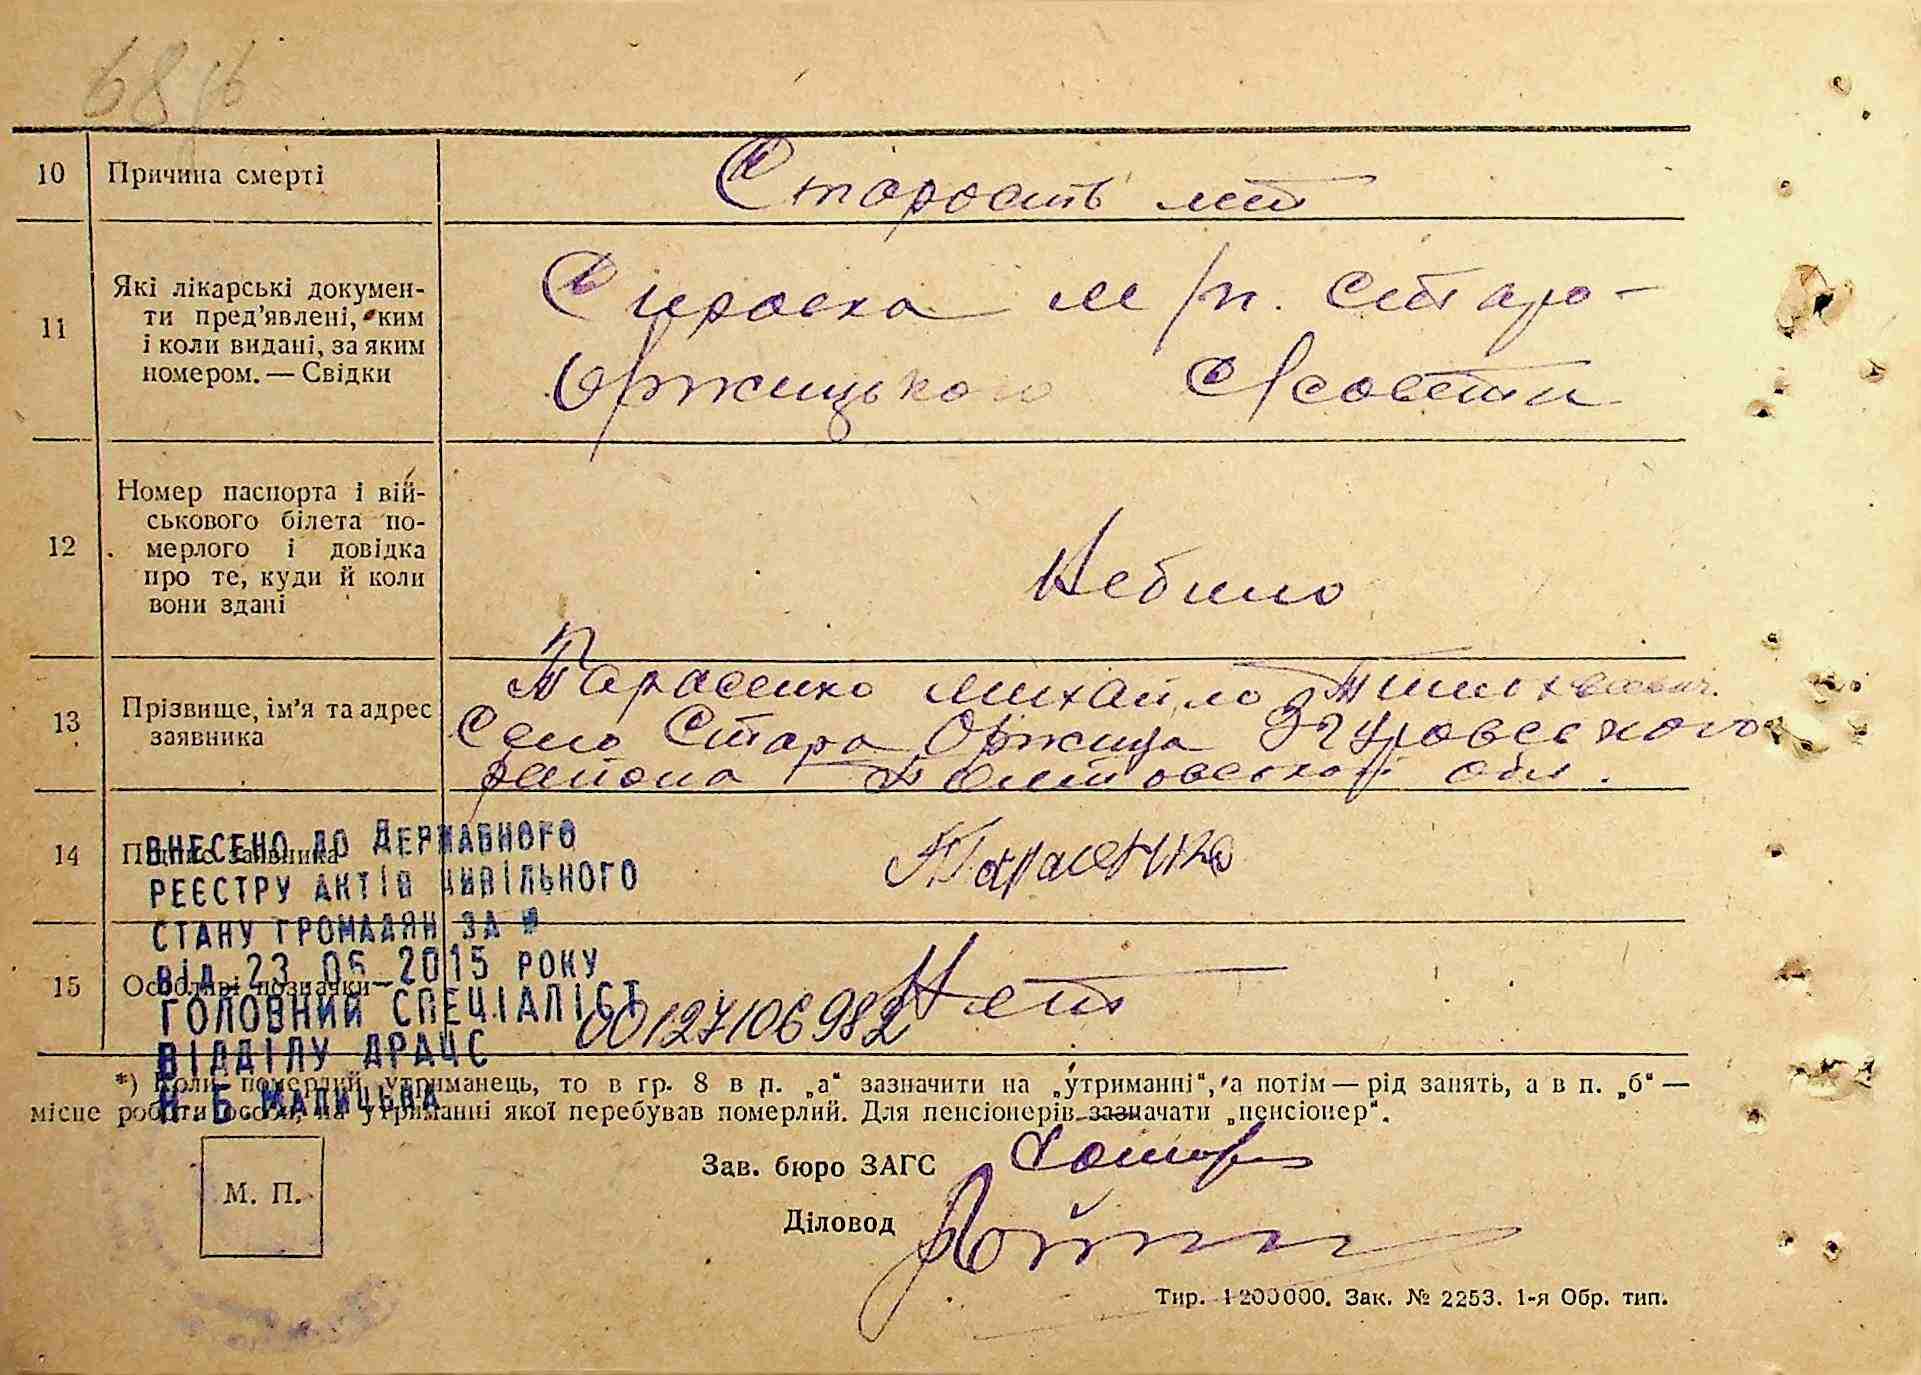 68
10 Причина смерті Старость лет
11 Які лікарські докумен-
ти пред'явлені, ким
і коли видані, за яким
номером. — Свідки
Справка м/п. Старо-
Оржицького с/совети
12 Номер паспорта і вій-
ськового білета по-
мерлого і довідка
про те, куди й коли
вони здані
Небило
13 Прізвище, ім'я та адрес
заявника
Тарасенко михайло
Село Стара Оржица Згуровсского
района Полтовской обл.
14 Підпис заявника Тарасенко
15 Особливі позначки Нет
ВНЕСЕНО ДО ДЕРЖАВНОГО
РЕЄСТРУ АКТІВ ЦИВІЛЬНОГО
СТАНУ ГРОМАДЯН ЗА №
ВІД 23 05 2015 РОКУ
ГОЛОВНИЙ СПЕЦІАЛІСТ
00127106982
ВІДДІЛУ ДРАЦС
*) Коли померлий утриманець, то в гр. 8 в п. „а“ зазначити на „утриманні“, а потім — рід занять, а в п. „б“ —
місце роботи особи, на утриманні якої перебував померлий. Для пенсіонерів зазначати „пенсіонер“.
М. П.
Зав. бюро ЗАГС
Діловод
Тир. 1200000. Зак. № 2253. 1-я Обр. тип.